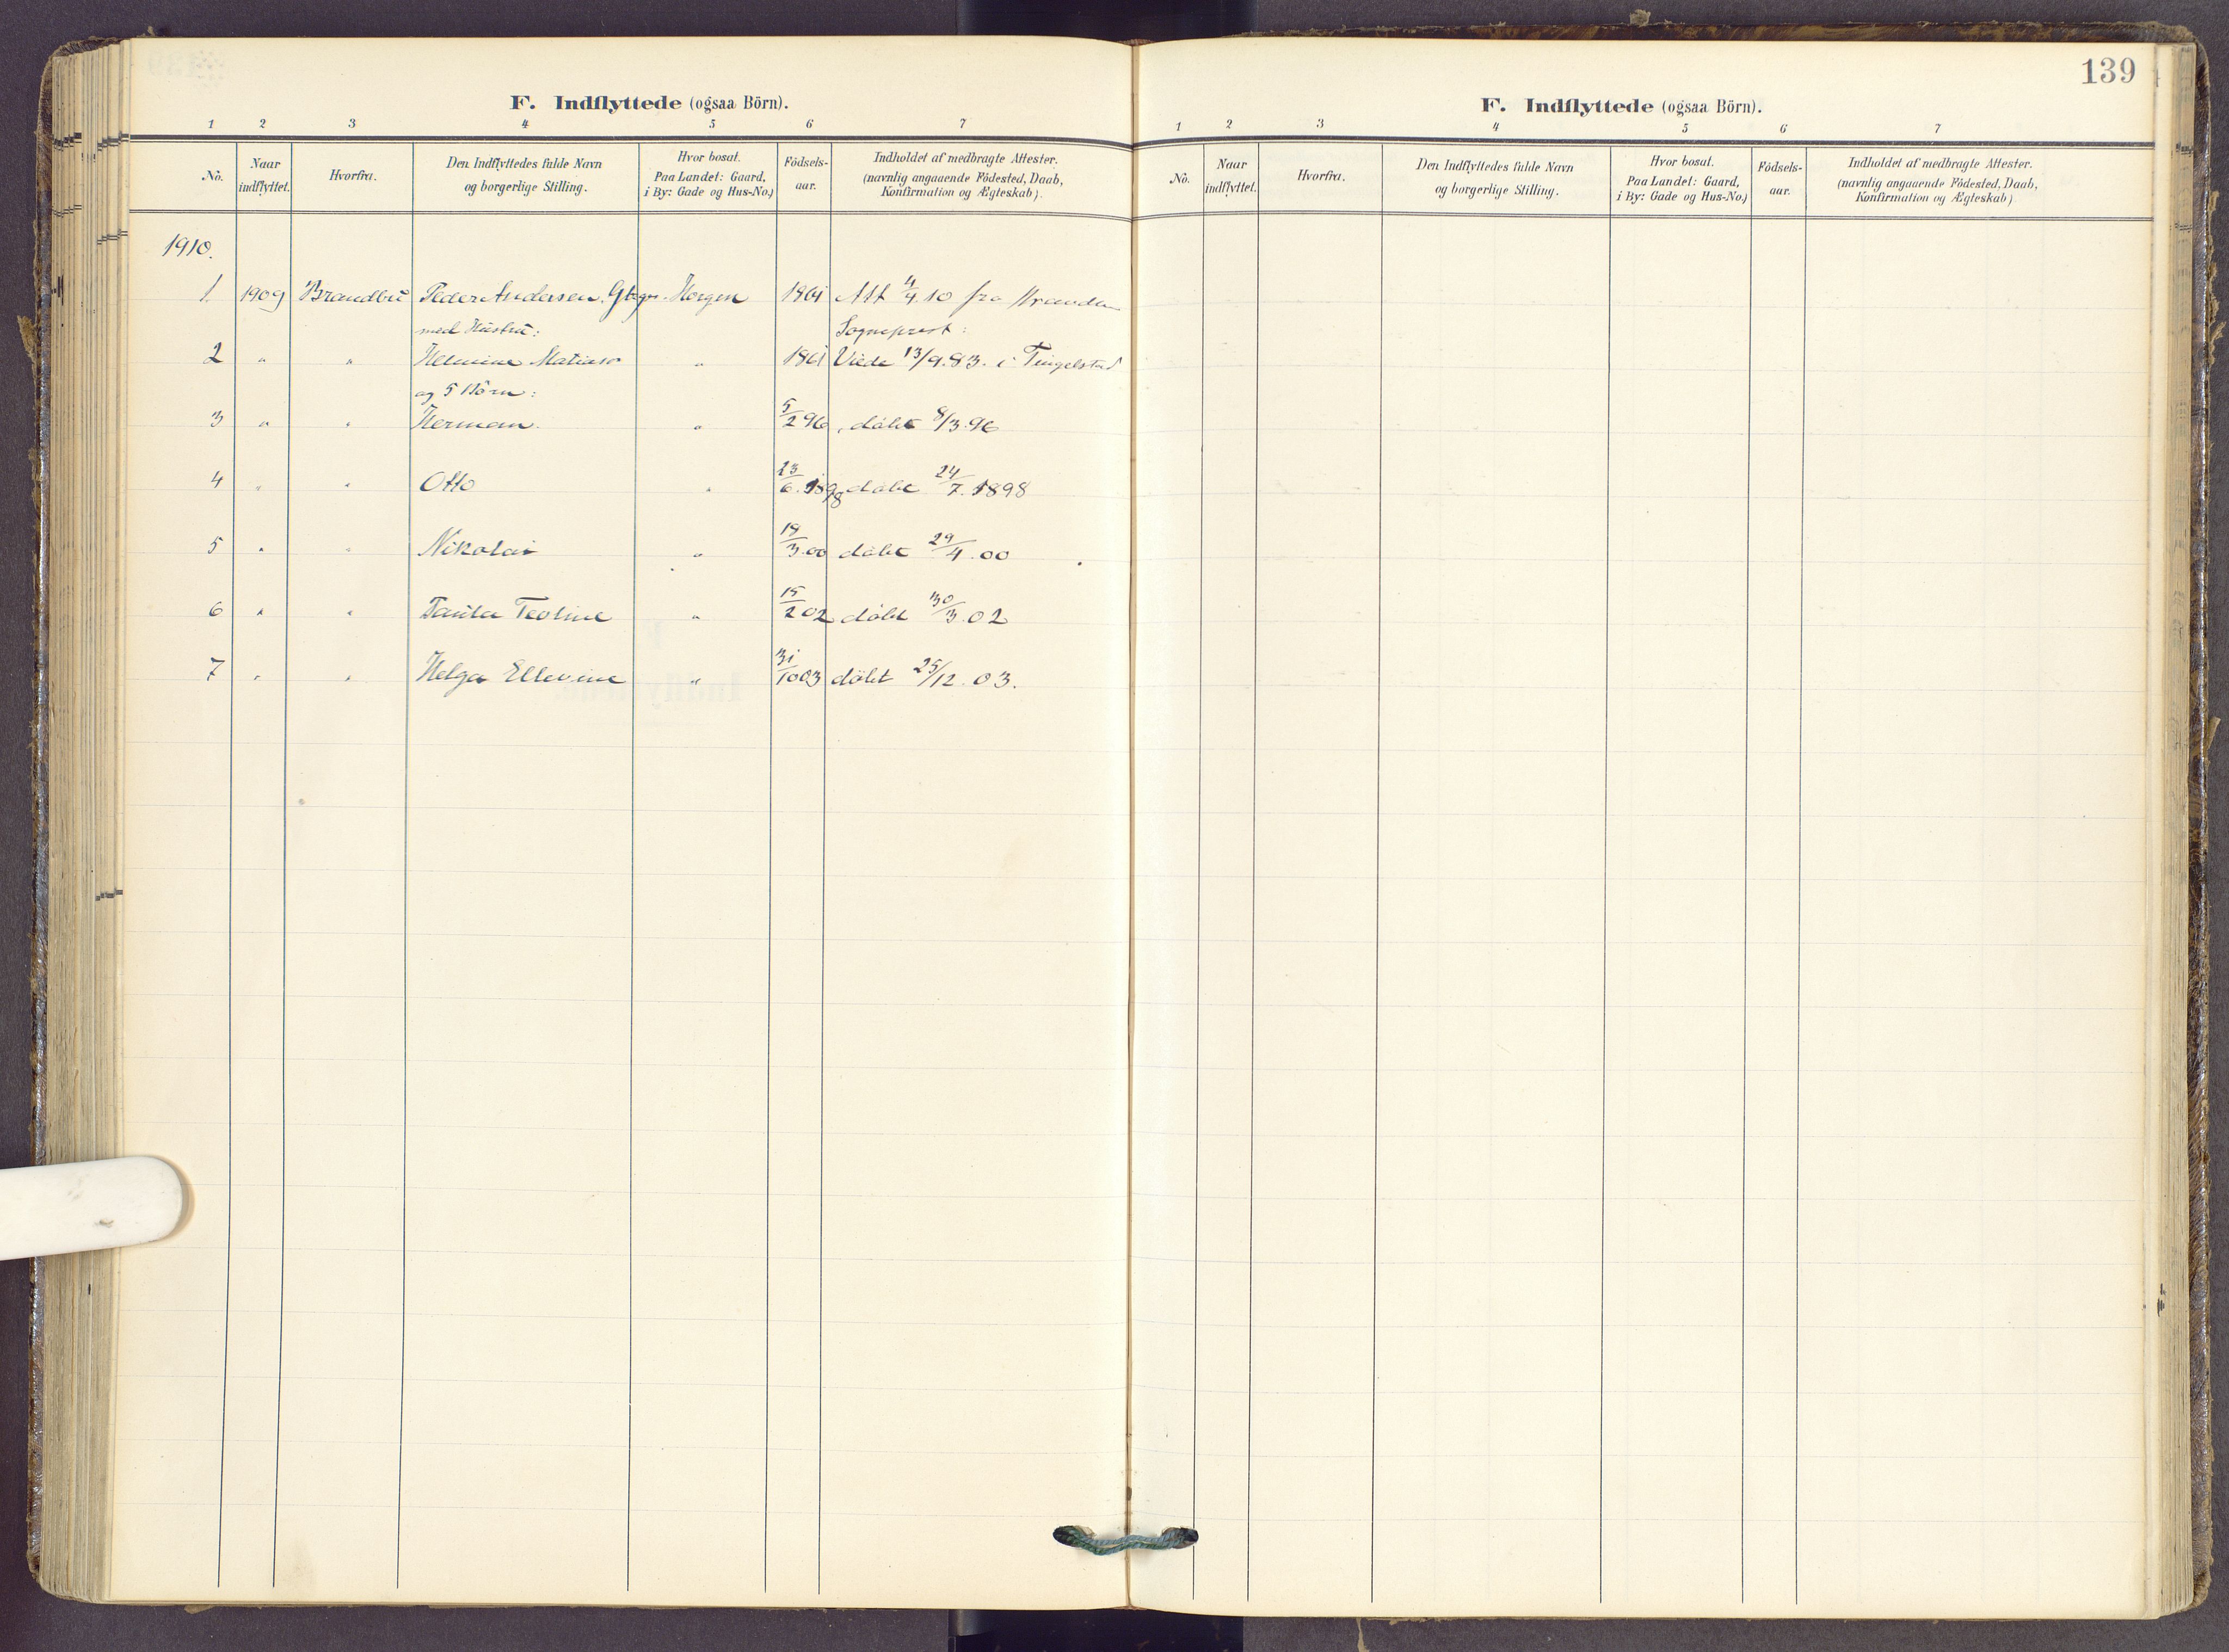 139
F. Indflyttede (ogsaa Börn).
1 2 3 4 5 6 7
No. Naar indflyttet. Hvorfra. Den Indflyttedes fulde Navn og borgerlige Stilling. Hvor bosat. Paa Landet: Gaard, i By: Gade og Hus-No.) Födsels-aar. Indholdet af medbragte Attester. (navnlig angaaende Födested, Daab, Konfirmation og Ægteskab).
1910.
1. 1909 Brandbu Peder Andersen. Horgen 1861 Att 4/4.10 fra
med Hustru: Sogneprest:
2 " " Helmine " 1861 Viede 13/9.83. i Tingelstad
og 5 Börn:
3 " " Herman. " 5/2 96, döbt 8/3.96
4 " " Otto " 23/6.1898 döbt 24/7.1898
5 " " Nikolai " 19/3.00 döbt 29/4.00
6 " " Paula " 15/2 02 döbt 30/3.02
7 " " Helga Ellevine " 31/10 03 döbt 25/12.03.
F. Indflyttede (ogsaa Börn).
1 2 3 4 5 6 7
No. Naar indflyttet. Hvorfra. Den Indflyttedes fulde Navn og borgerlige Stilling. Hvor bosat. Paa Landet: Gaard, i By: Gade og Hus-No.) Födsels-aar. Indholdet af medbragte Attester. (navnlig angaaende Födested, Daab, Konfirmation og Ægteskab)